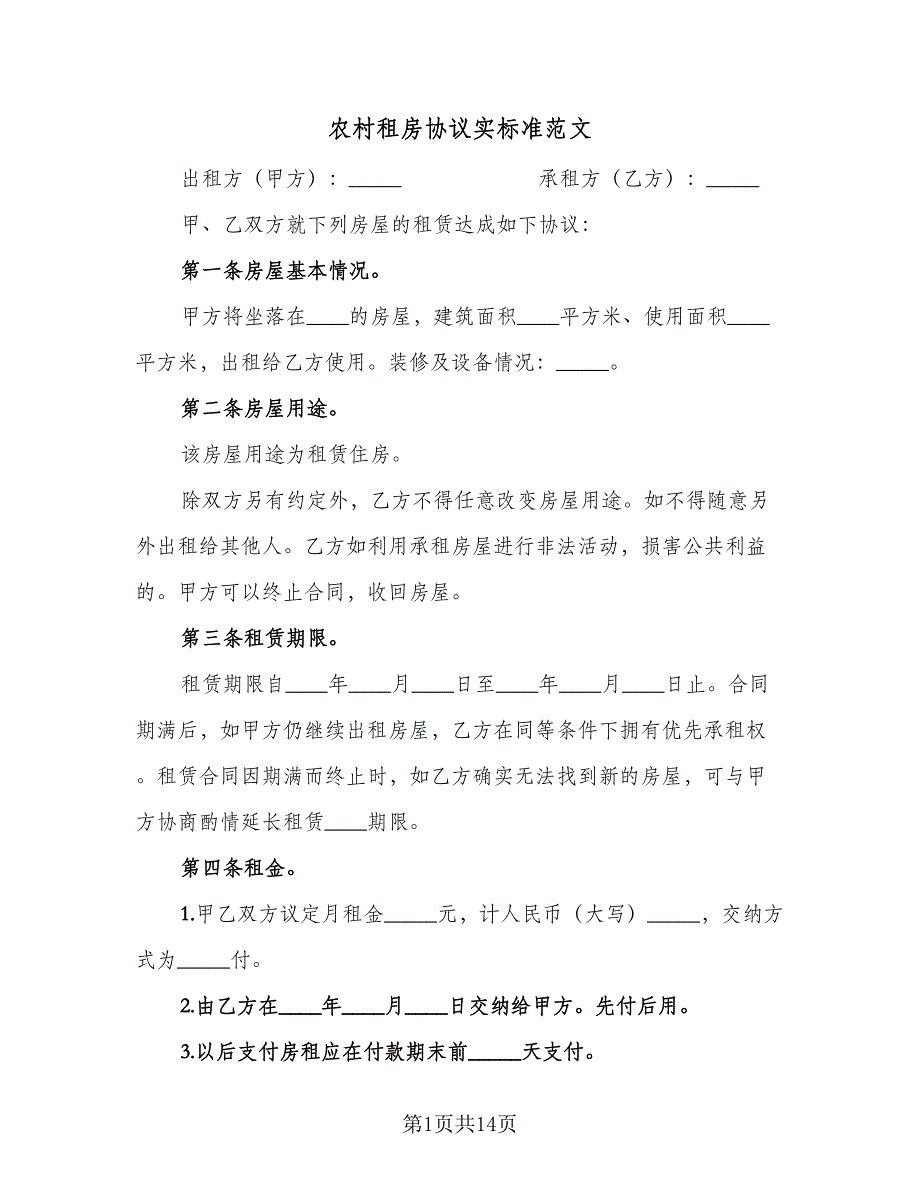 农村租房协议实标准范文
出租方（甲方）：_____ 承租方（乙方）：_____
甲、乙双方就下列房屋的租赁达成如下协议：
第一条房屋基本情况。
甲方将坐落在____的房屋，建筑面积____平方米、使用面积____
平方米，出租给乙方使用。装修及设备情况：_____。
第二条房屋用途。
该房屋用途为租赁住房。
除双方另有约定外，乙方不得任意改变房屋用途。如不得随意另
外出租给其他人。乙方如利用承租房屋进行非法活动，损害公共利益
的。甲方可以终止合同，收回房屋。
第三条租赁期限。
租赁期限自____年____月____日至____年____月____日止。合同
期满后，如甲方仍继续出租房屋，乙方在同等条件下拥有优先承租权
。租赁合同因期满而终止时，如乙方确实无法找到新的房屋，可与甲
方协商酌情延长租赁____期限。
第四条租金。
1.甲乙双方议定月租金_____元，计人民币（大写）_____，交纳方
式为_____付。
2.由乙方在____年____月____日交纳给甲方。先付后用。
3.以后支付房租应在付款期末前_____天支付。
第1页共14页